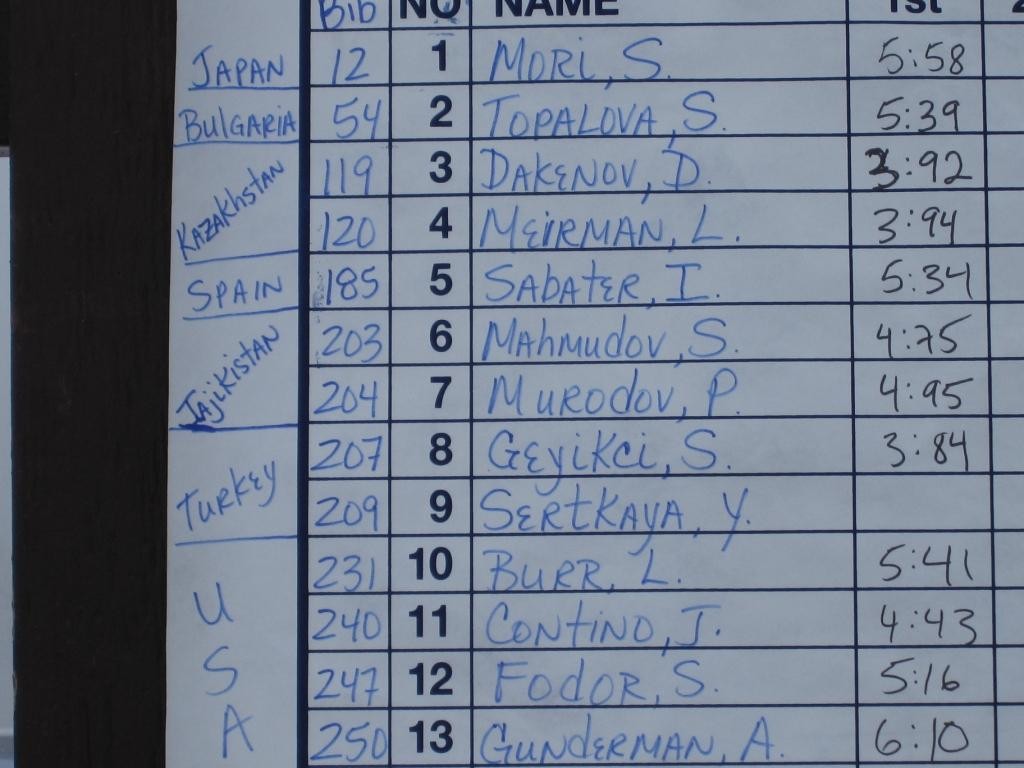 Bib NO NAME 1st
JAPAN 12 1 MORI, S. 5:58
BULGARIA 54 2 TOPALOVA, S. 5:39
KAZAKhStAN 119 3 DAKENOV, D. 3:92
120 4 MEIRMAN, L. 3:94
SPAIN 185 5 SAbAtER, I. 5:34
JAjiKiStAN 203 6 MAhMudov, S. 4:75
204 7 MURodov, P. 4:95
TURKEY 207 8 GEyiKci, S. 3:84
209 9 SERtKAYA, Y.
USA 231 10 BURR, L. 5:41
240 11 CONtINO, J. 4:43
247 12 FodoR, S. 5:16
250 13 GUNdERMAN, A. 6:10